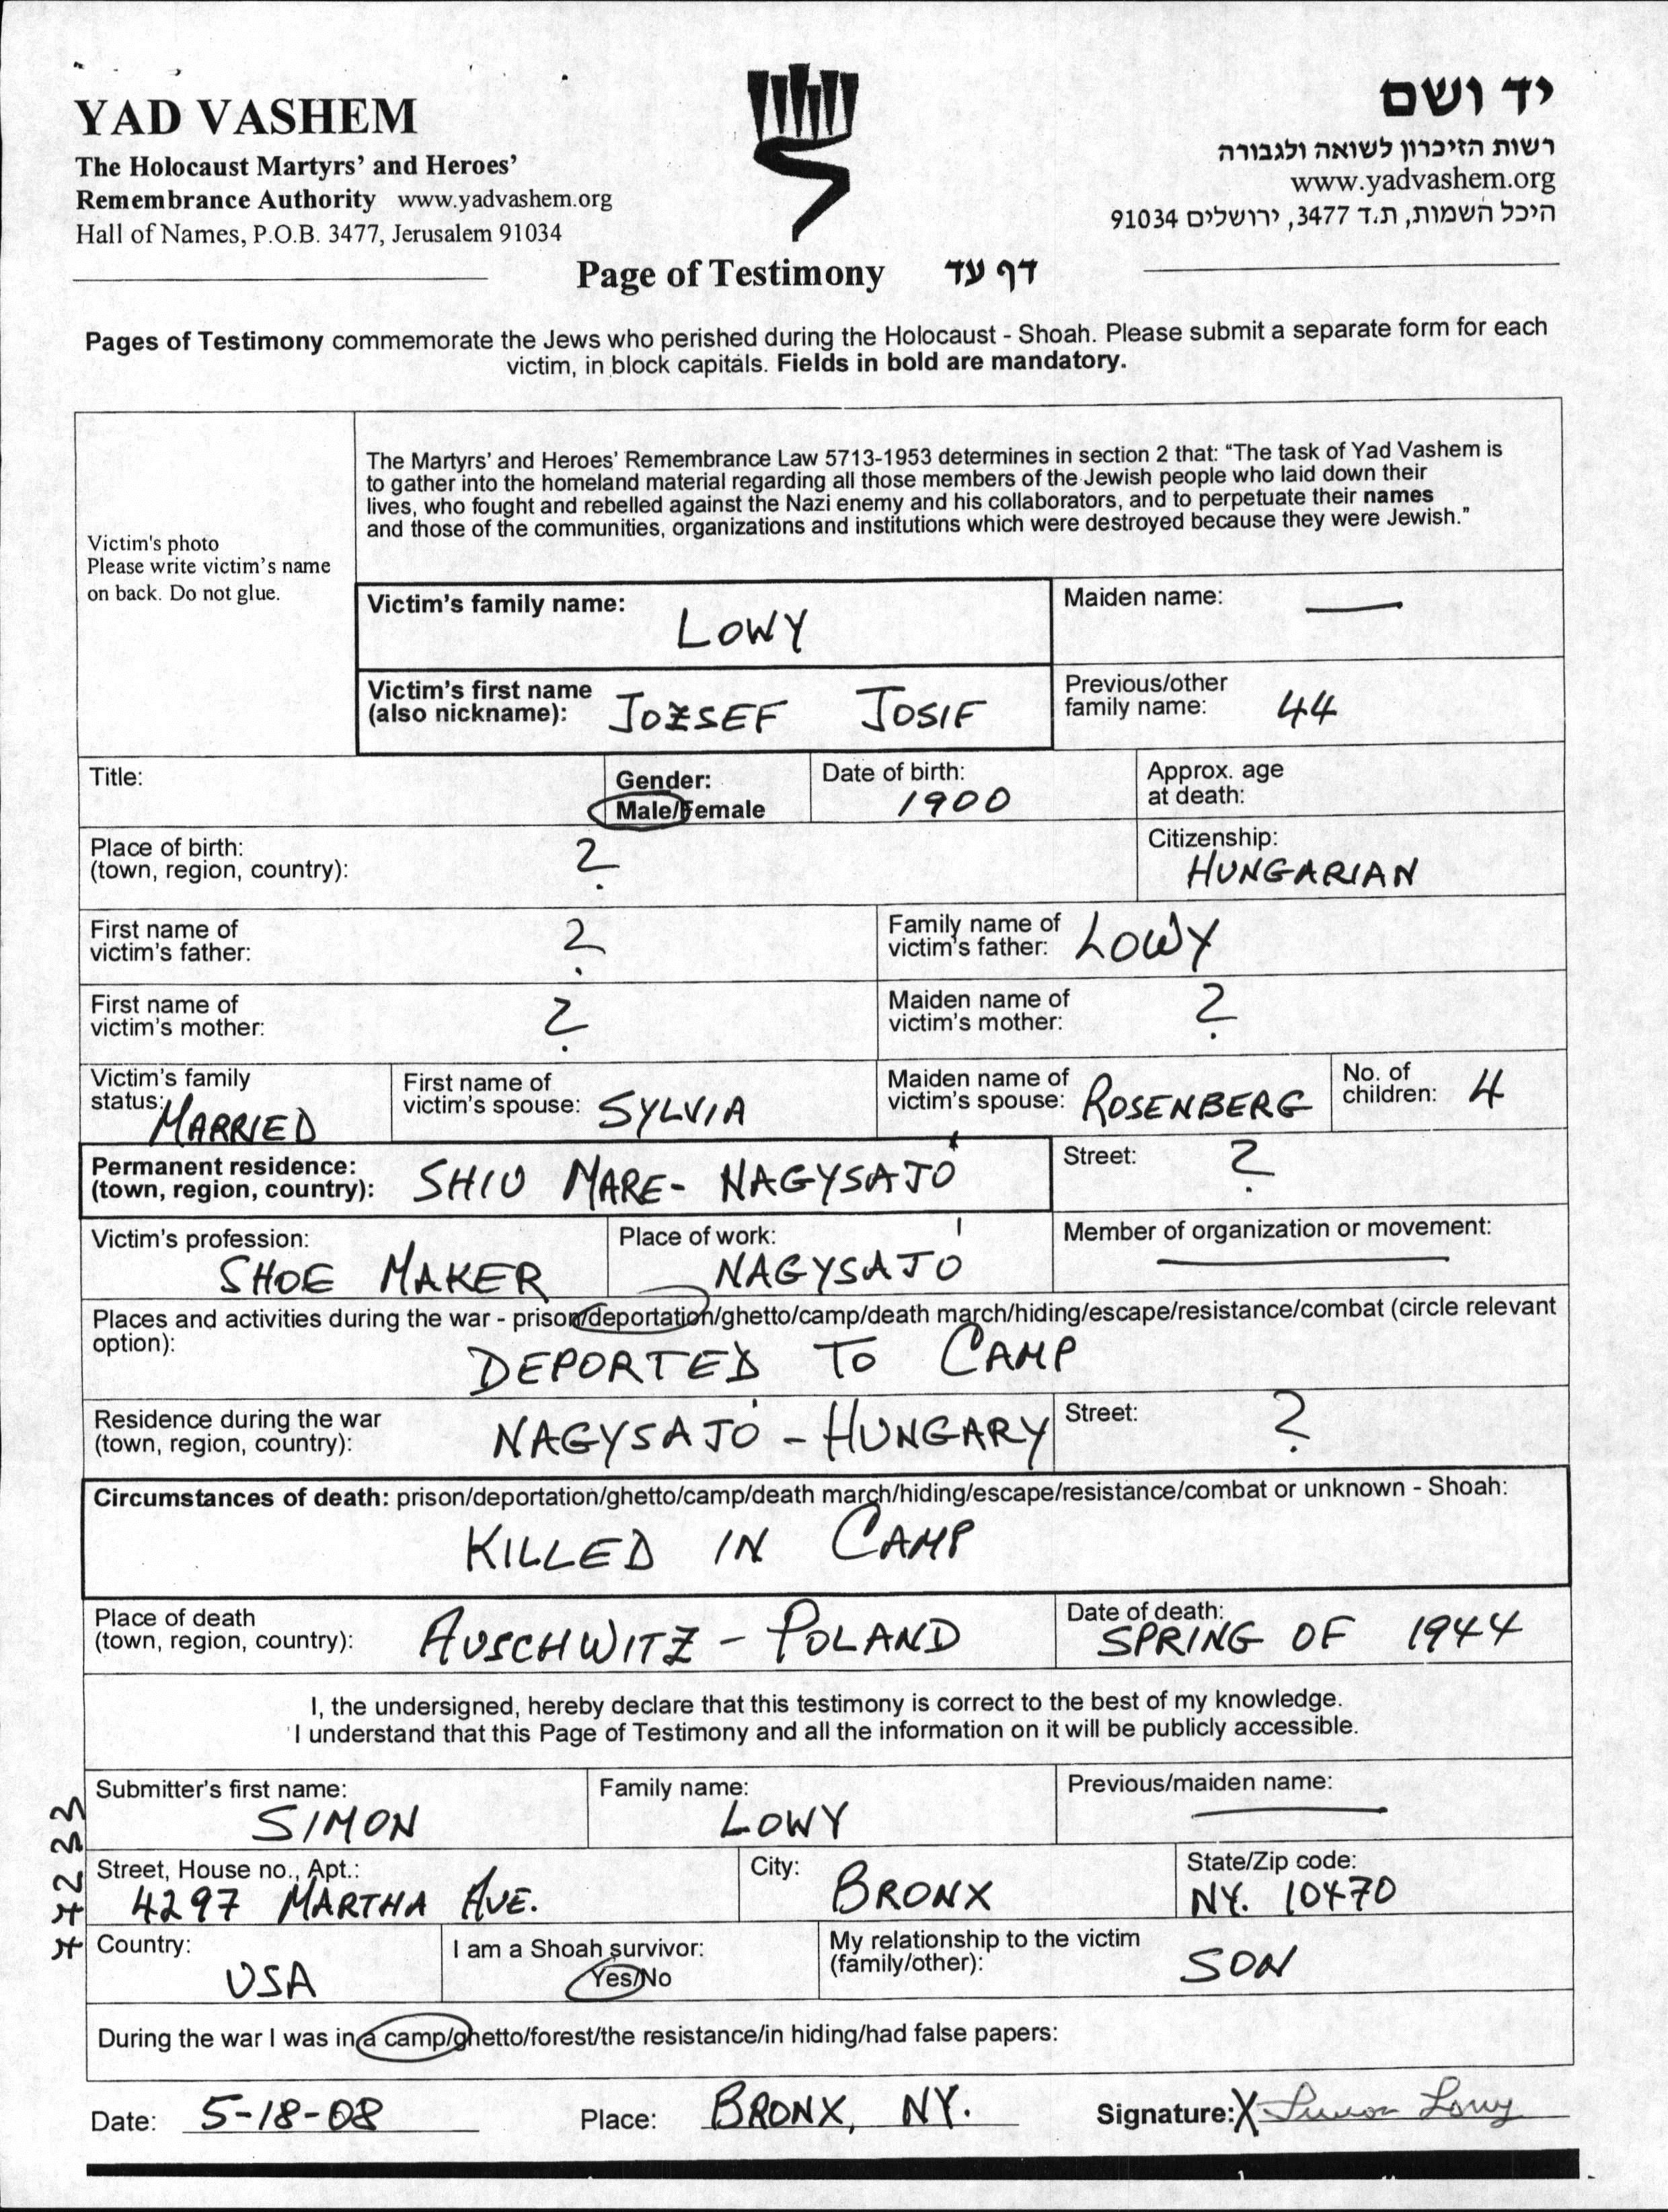 YAD VASHEM
The Holocaust Martyrs' and Heroes'
Remembrance Authority www.yadvashem.org
Hall of Names, P.O.B. 3477, Jerusalem 91034
יד ושם
רשות הזיכרון לשואה ולגבורה
www.yadvashem.org
היכל השמות, ת.ד 3477, ירושלים 91034
Page of Testimony דף עד
Pages of Testimony commemorate the Jews who perished during the Holocaust - Shoah. Please submit a separate form for each
victim, in block capitals. Fields in bold are mandatory.
Victim's photo
Please write victim's name
on back. Do not glue.
The Martyrs' and Heroes' Remembrance Law 5713-1953 determines in section 2 that: "The task of Yad Vashem is
to gather into the homeland material regarding all those members of the Jewish people who laid down their
lives, who fought and rebelled against the Nazi enemy and his collaborators, and to perpetuate their names
and those of the communities, organizations and institutions which were destroyed because they were Jewish."
Victim's family name: LOWY
Maiden name: —
Victim's first name
(also nickname): JOZSEF JOSIF
Previous/other
family name: 44
Title:
Gender:
Male/Female
Date of birth:
1900
Approx. age
at death:
Place of birth:
(town, region, country): ?
Citizenship:
HUNGARIAN
First name of
victim's father: ?
Family name of
victim's father: LOWY
First name of
victim's mother: ?
Maiden name of
victim's mother: ?
Victim's family
status: MARRIED
First name of
victim's spouse: SYLVIA
Maiden name of
victim's spouse: ROSENBERG
No. of
children: 4
Permanent residence:
(town, region, country): SHIU MARE- NAGYSAJÓ
Street: ?
Victim's profession:
SHOE MAKER
Place of work:
NAGYSAJÓ
Member of organization or movement:
—
Places and activities during the war - prison/deportation/ghetto/camp/death march/hiding/escape/resistance/combat (circle relevant
option):
DEPORTED TO CAMP
Residence during the war
(town, region, country): NAGYSAJÓ - HUNGARY
Street: ?
Circumstances of death: prison/deportation/ghetto/camp/death march/hiding/escape/resistance/combat or unknown - Shoah:
KILLED IN CAMP
Place of death
(town, region, country): AUSCHWITZ - POLAND
Date of death:
SPRING OF 1944
I, the undersigned, hereby declare that this testimony is correct to the best of my knowledge.
I understand that this Page of Testimony and all the information on it will be publicly accessible.
Submitter's first name:
SIMON
Family name:
LOWY
Previous/maiden name:
—
Street, House no., Apt.:
4297 MARTHA AVE.
City:
BRONX
State/Zip code:
NY. 10470
Country:
USA
I am a Shoah survivor:
Yes/No
My relationship to the victim
(family/other): SON
During the war I was in a camp/ghetto/forest/the resistance/in hiding/had false papers:
Date: 5-18-08
Place: BRONX, NY.
Signature: X Simon Lowy